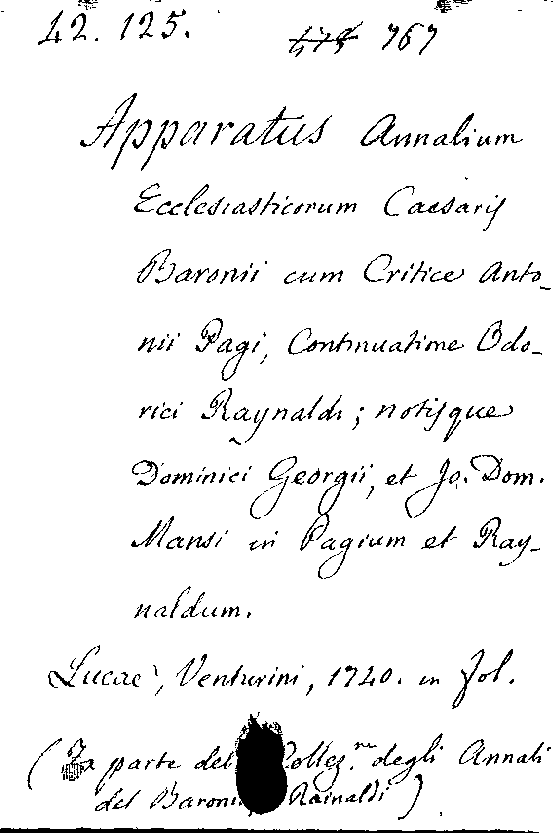 42. 125. 767
Apparatus Annalium
Ecclesiasticorum Caesaris
Baronii cum Critice Anto_
nii Pagi, Continuatione Odo_
rici Raynaldi; notisque
Dominici Georgii, et Jo. Dom.
Mansi in Pagium et Ray_
naldum.
Lucae, Venturini, 1740. in fol.
( Fa parte del Collez.ne degli Annali
del Baronio, Rainaldi )